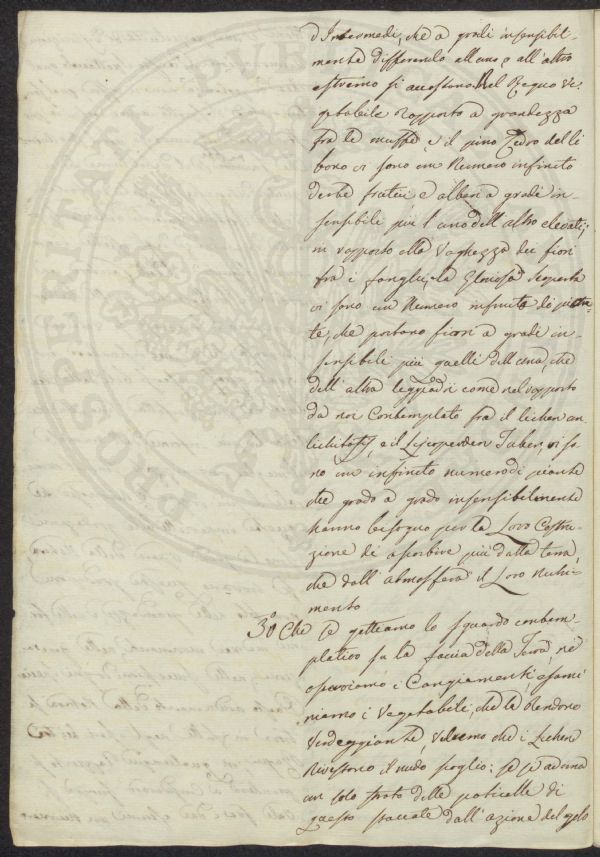 d'Intermedi, che a gradi insensibil-
mente differendo all'uno, e all'altro
estremo si accostano. Nel Regno Ve-
getabile rapporto a grandezza
fra le muffe, e il pino Cedro del Li
bano vi sono un Numero infinito
d'erbe frutici e alberi a gradi in-
sensibili più l'uno dell'altro elevati;
in rapporto alla Vaghezza dei fiori
fra i fonghi, e la Gloriosa Superba
vi sono un Numero infinito di pian-
te, che portano fiori a gradi in-
sensibile più quelli dell'una, che
dell'altra leggiadri come nel rapporto
da noi Contemplato fra il lichen
e il Licoperdon Tuber, vi so
no un infinito numero di piante
che grado a grado insensibilmente
hanno bisogno per la Loro Costru-
zione di assorbire più dalla terra,
che dall'atmosfera il Loro Nutri-
mento
3.o Che se gettiamo lo sguardo contem-
plativo su la faccia della Terra, ne
osserviamo i Cangiamenti, esami
niamo i Vegetabili, che la rendono
Verdeggiante, Vedremo che i Lichen
Rivestono il nudo scoglio: se si
un solo strato delle particelle di
questo staccate dall'azione del gelo
PROSPERITATI PUBLICAE